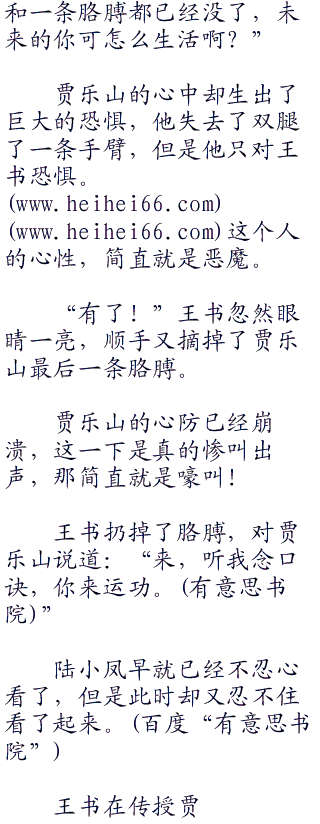 和一条胳膊都已经没了，未
来的你可怎么生活啊？”
贾乐山的心中却生出了
巨大的恐惧，他失去了双腿
了一条手臂，但是他只对王
书恐惧。
(www.heihei66.com)
(www.heihei66.com)这个人
的心性，简直就是恶魔。
“有了！”王书忽然眼
睛一亮，顺手又摘掉了贾乐
山最后一条胳膊。
贾乐山的心防已经崩
溃，这一下是真的惨叫出
声，那简直就是嚎叫！
王书扔掉了胳膊，对贾
乐山说道：“来，听我念口
诀，你来运功。(有意思书
院)”
陆小凤早就已经不忍心
看了，但是此时却又忍不住
看了起来。(百度“有意思书
院”)
王书在传授贾